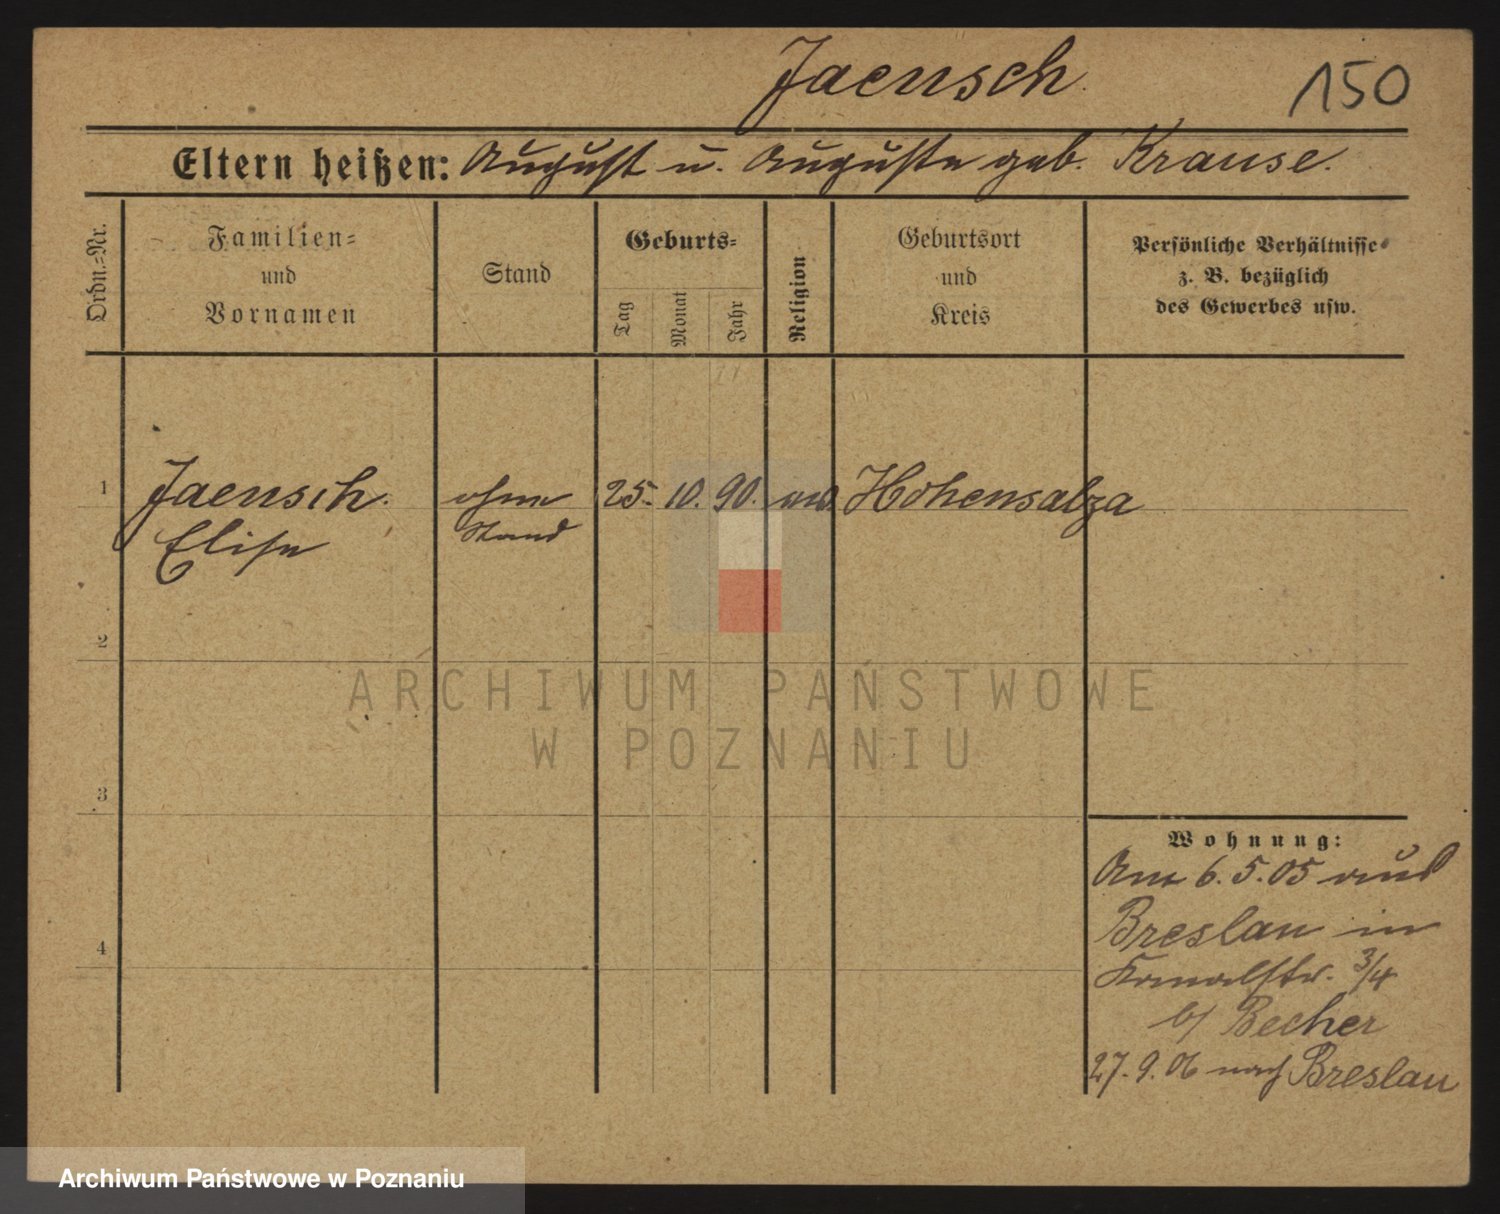 Jaensch.
150
Eltern heißen: August u. Auguste geb. Krause.
Ordn.-Nr.
Familien-
und
Vornamen
Stand
Geburts-
Tag
Monat
Jahr
Religion
Geburtsort
und
Kreis
Persönliche Verhältnisse
z. B. bezüglich
des Gewerbes usw.
1
Jaensch. ohne 25. 10. 90. Hohensalza
Elise Stand
2
ARCHIWUM PAŃSTWOWE
W POZNANIU
3
Wohnung:
Am 6.5.05 aus
Breslau in
4
Kanalstr. 3/4
b/ Becher
27.9.06 nach Breslau
Archiwum Państwowe w Poznaniu